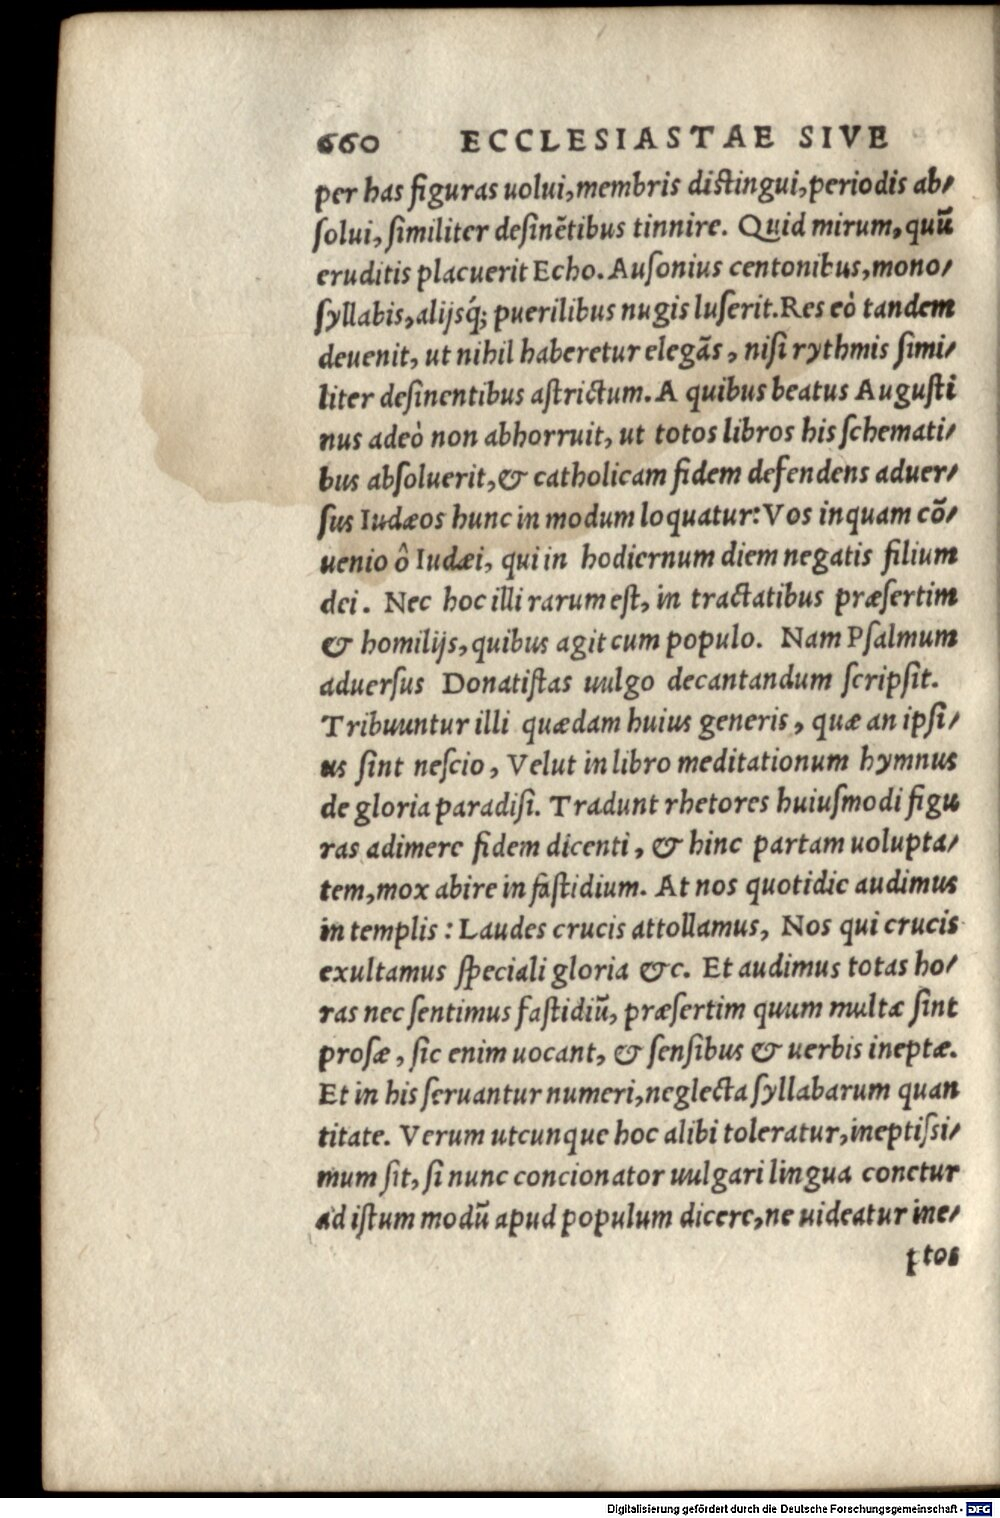 660 ECCLESIASTAE SIVE
per has figuras uolui, membris distingui, periodis ab/
ſolui, ſimiliter deſinẽtibus tinnire. Quid mirum, quũ
eruditis placuerit Echo. Auſonius centonibus, mono/
ſyllabis, alijsq́; puerilibus nugis luſerit. Res eò tandem
deuenit, ut nihil haberetur elegãs, niſi rythmis ſimi/
liter deſinentibus aſtrictum. A quibus beatus Auguſti
nus adeò non abhorruit, ut totos libros his ſchemati/
bus abſoluerit, & catholicam fidem defendens aduer/
ſus Iudæos hunc in modum loquatur: Vos inquam cõ/
uenio ô Iudæi, qui in hodiernum diem negatis filium
dei. Nec hoc illi rarum eſt, in tractatibus præſertim
& homilijs, quibus agit cum populo. Nam Pſalmum
aduerſus Donatiſtas uulgo decantandum ſcripſit.
Tribuuntur illi quædam huius generis, quæ an ipſi/
us ſint neſcio, Velut in libro meditationum hymnus
de gloria paradiſi. Tradunt rhetores huiuſmodi figu
ras adimere fidem dicenti, & hinc partam uolupta/
tem, mox abire in faſtidium. At nos quotidie audimus
in templis: Laudes crucis attollamus, Nos qui crucis
exultamus ſpeciali gloria &c. Et audimus totas ho/
ras nec ſentimus faſtidiũ, præſertim quum multæ ſint
proſæ, ſic enim uocant, & ſenſibus & uerbis ineptæ.
Et in his ſeruantur numeri, neglecta ſyllabarum quan
titate. Verum utcunque hoc alibi toleratur, ineptiſſi/
mum ſit, ſi nunc concionator uulgari lingua conetur
ad iſtum modũ apud populum dicere, ne uideatur ine/
ptos
Digitalisierung gefördert durch die Deutsche Forschungsgemeinschaft - DFG